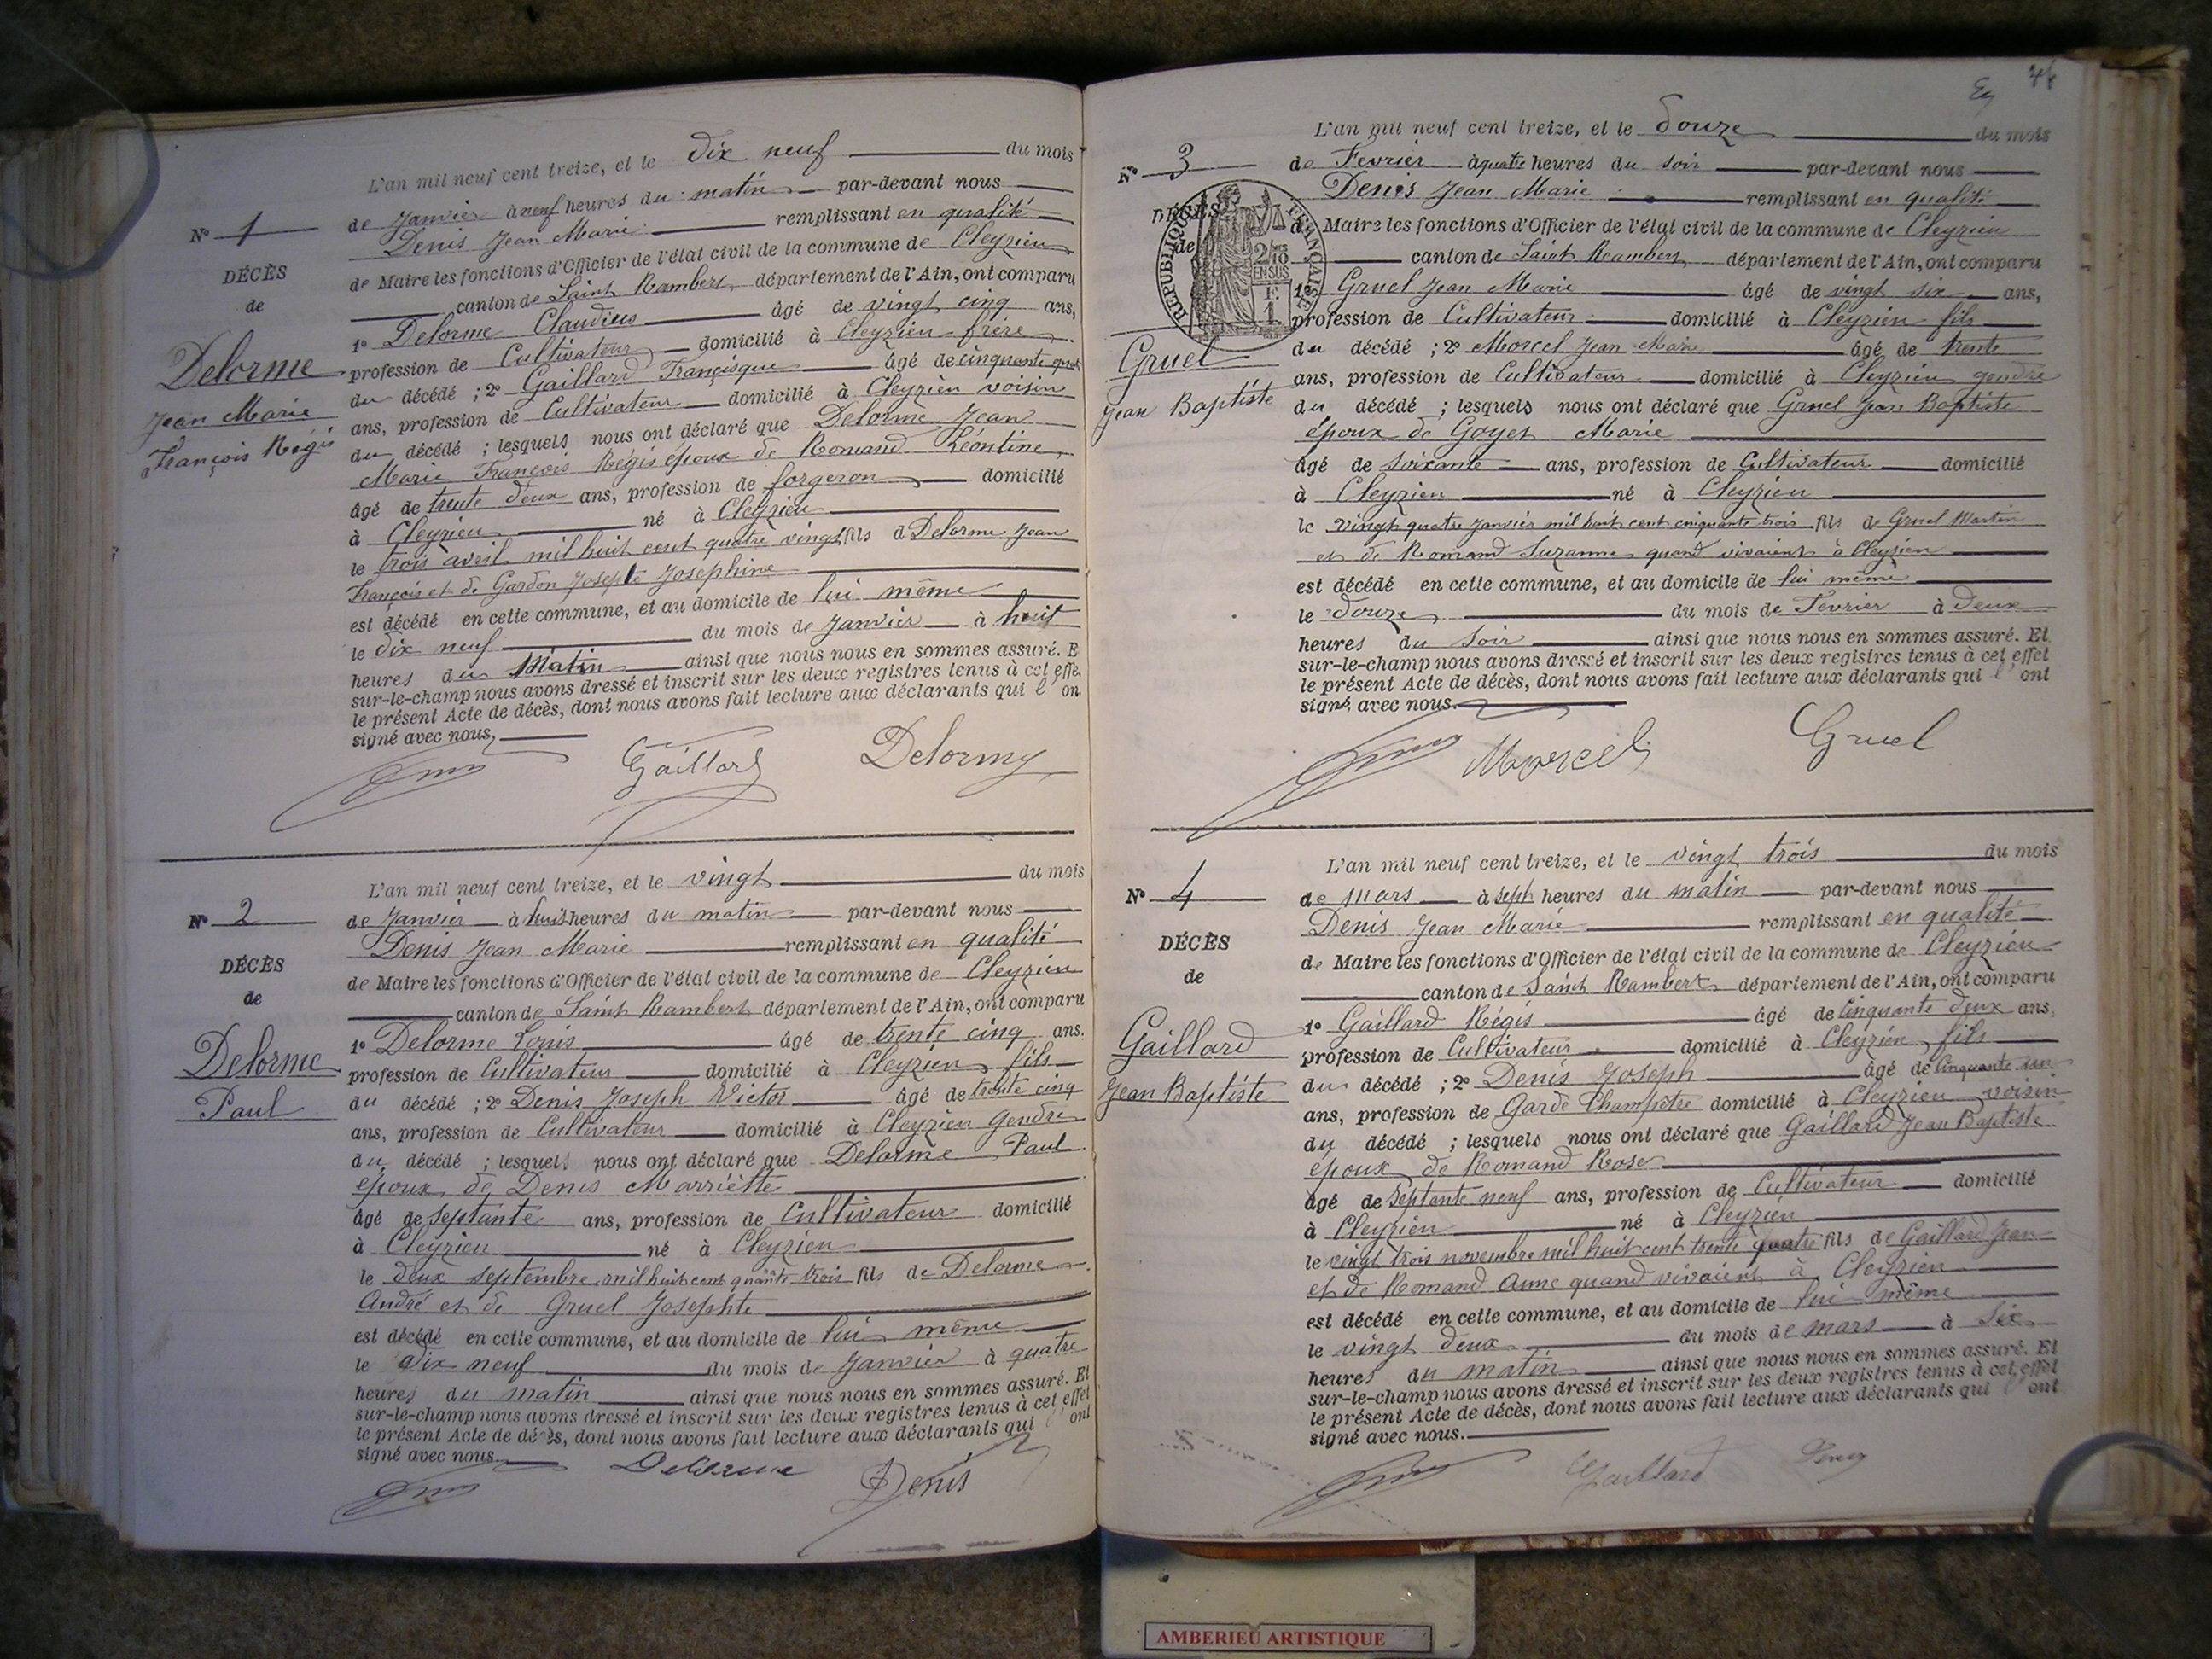 L'an mil neuf cent treize, et le dix neuf du mois
de Janvier à neuf heures du matin par-devant nous
Denis Jean Marie remplissant en qualité
de Maire les fonctions d'Officier de l'état civil de la commune de Cleyzieu
canton de Saint Rambert département de l'Ain, ont comparu
1º Delorme Claudius âgé de vingt cinq ans,
profession de Cultivateur domicilié à Cleyzieu frère
du décédé ; 2º Gaillard Françisque âgé de cinquante
ans, profession de Cultivateur domicilié à Cleyzieu voisin
du décédé ; lesquels nous ont déclaré que Delorme Jean
Marie François Régis époux de Romand Léontine
âgé de trente deux ans, profession de forgeron domicilié
à Cleyzieu né à Cleyzieu
le trois avril mil huit cent quatre vingt fils d Delorme Jean
François et de Gardon Josephte Josephine
est décédé en cette commune, et au domicile de lui même
le dix neuf du mois de Janvier à huit
heures du Matin ainsi que nous nous en sommes assuré. E
sur-le-champ nous avons dressé et inscrit sur les deux registres tenus à cet effe
le présent Acte de décès, dont nous avons fait lecture aux déclarants qui l' on
signé avec nous,
Nº 1
DÉCÈS
de
Delorme
Jean Marie
François Régis
Gaillard Delorme
L'an mil neuf cent treize, et le vingt du mois
de Janvier à huit heures du matin par-devant nous
Denis Jean Marie remplissant en qualité
de Maire les fonctions d'Officier de l'état civil de la commune de Cleyzieu
canton de Saint Rambert département de l'Ain, ont comparu
1º Delorme Louis âgé de trente cinq ans.
profession de Cultivateur domicilié à Cleyzieu fils
du décédé ; 2º Denis Joseph Victor âgé de trente cinq
ans, profession de Cultivateur domicilié à Cleyzieu gendre
du décédé ; lesquels nous ont déclaré que Delorme Paul
époux de Denis Marriètte
âgé de septante ans, profession de Cultivateur domicilié
à Cleyzieu né à Cleyzieu
le deux septembre mil huit cent quarante trois fils de Delorme
André et de Gruel Josephte
est décédé en cette commune, et au domicile de lui même
le dix neuf du mois de Janvier à quatre
heures du matin ainsi que nous nous en sommes assuré. Et
sur-le-champ nous avons dressé et inscrit sur les deux registres tenus à cet effet
le présent Acte de décès, dont nous avons fait lecture aux déclarants qui l' ont
signé avec nous.
Nº 2
DÉCÈS
de
Delorme
Paul
Delorme Denis
L'an mil neuf cent treize, et le Douze du mois
de Fevrier à quatre heures du soir par-devant nous
Denis Jean Marie remplissant en qualité
de Maire les fonctions d'Officier de l'état civil de la commune de Cleyzieu
canton de Saint Rambert département de l'Ain, ont comparu
1º Gruel Jean Marie âgé de vingt six ans,
profession de Cultivateur domicilié à Cleyzieu fils
du décédé ; 2º Morcel Jean Marie âgé de trente
ans, profession de Cultivateur domicilié à Cleyzieu gendre
du décédé ; lesquels nous ont déclaré que Gruel Jean Baptiste
époux de Goyet Marie
âgé de soixante ans, profession de Cultivateur domicilié
à Cleyzieu né à Cleyzieu
le vingt quatre janvier mil huit cent cinquante trois fils de Gruel Martin
et de Romand Suzanne quand vivaient à Cleyzieu
est décédé en cette commune, et au domicile de lui même
le Douze du mois de Fevrier à Deux
heures du soir ainsi que nous nous en sommes assuré. Et
sur-le-champ nous avons dressé et inscrit sur les deux registres tenus à cet effet
le présent Acte de décès, dont nous avons fait lecture aux déclarants qui l' ont
signé avec nous.
Nº 3
DÉCÈS
de
RÉPUBLIQUE FRANÇAISE
2/10
EN SUS
F.
1
Gruel
Jean Baptiste
Morcel Gruel
L'an mil neuf cent treize, et le vingt trois du mois
de mars à sept heures du matin par-devant nous
Denis Jean Marie remplissant en qualité
de Maire les fonctions d'Officier de l'état civil de la commune de Cleyzieu
canton de Saint Rambert département de l'Ain, ont comparu
1º Gaillard Régis âgé de Cinquante deux ans,
profession de Cultivateur domicilié à Cleyzieu fils
du décédé ; 2º Denis Joseph âgé de Cinquante un
ans, profession de Garde Champêtre domicilié à Cleyzieu voisin
du décédé ; lesquels nous ont déclaré que Gaillard Jean Baptiste
époux de Romand Rose
âgé de Septante neuf ans, profession de Cultivateur domicilié
à Cleyzieu né à Cleyzieu
le vingt trois novembre mil huit cent trente quatre fils de Gaillard Jean
et de Romand Anne quand vivaient à Cleyzieu
est décédé en cette commune, et au domicile de lui même
le vingt deux du mois de mars à six
heures du matin ainsi que nous nous en sommes assuré. Et
sur-le-champ nous avons dressé et inscrit sur les deux registres tenus à cet effet
le présent Acte de décès, dont nous avons fait lecture aux déclarants qui l' ont
signé avec nous.
Nº 4
DÉCÈS
de
Gaillard
Jean Baptiste
Gaillard Denis
AMBERIEU ARTISTIQUE